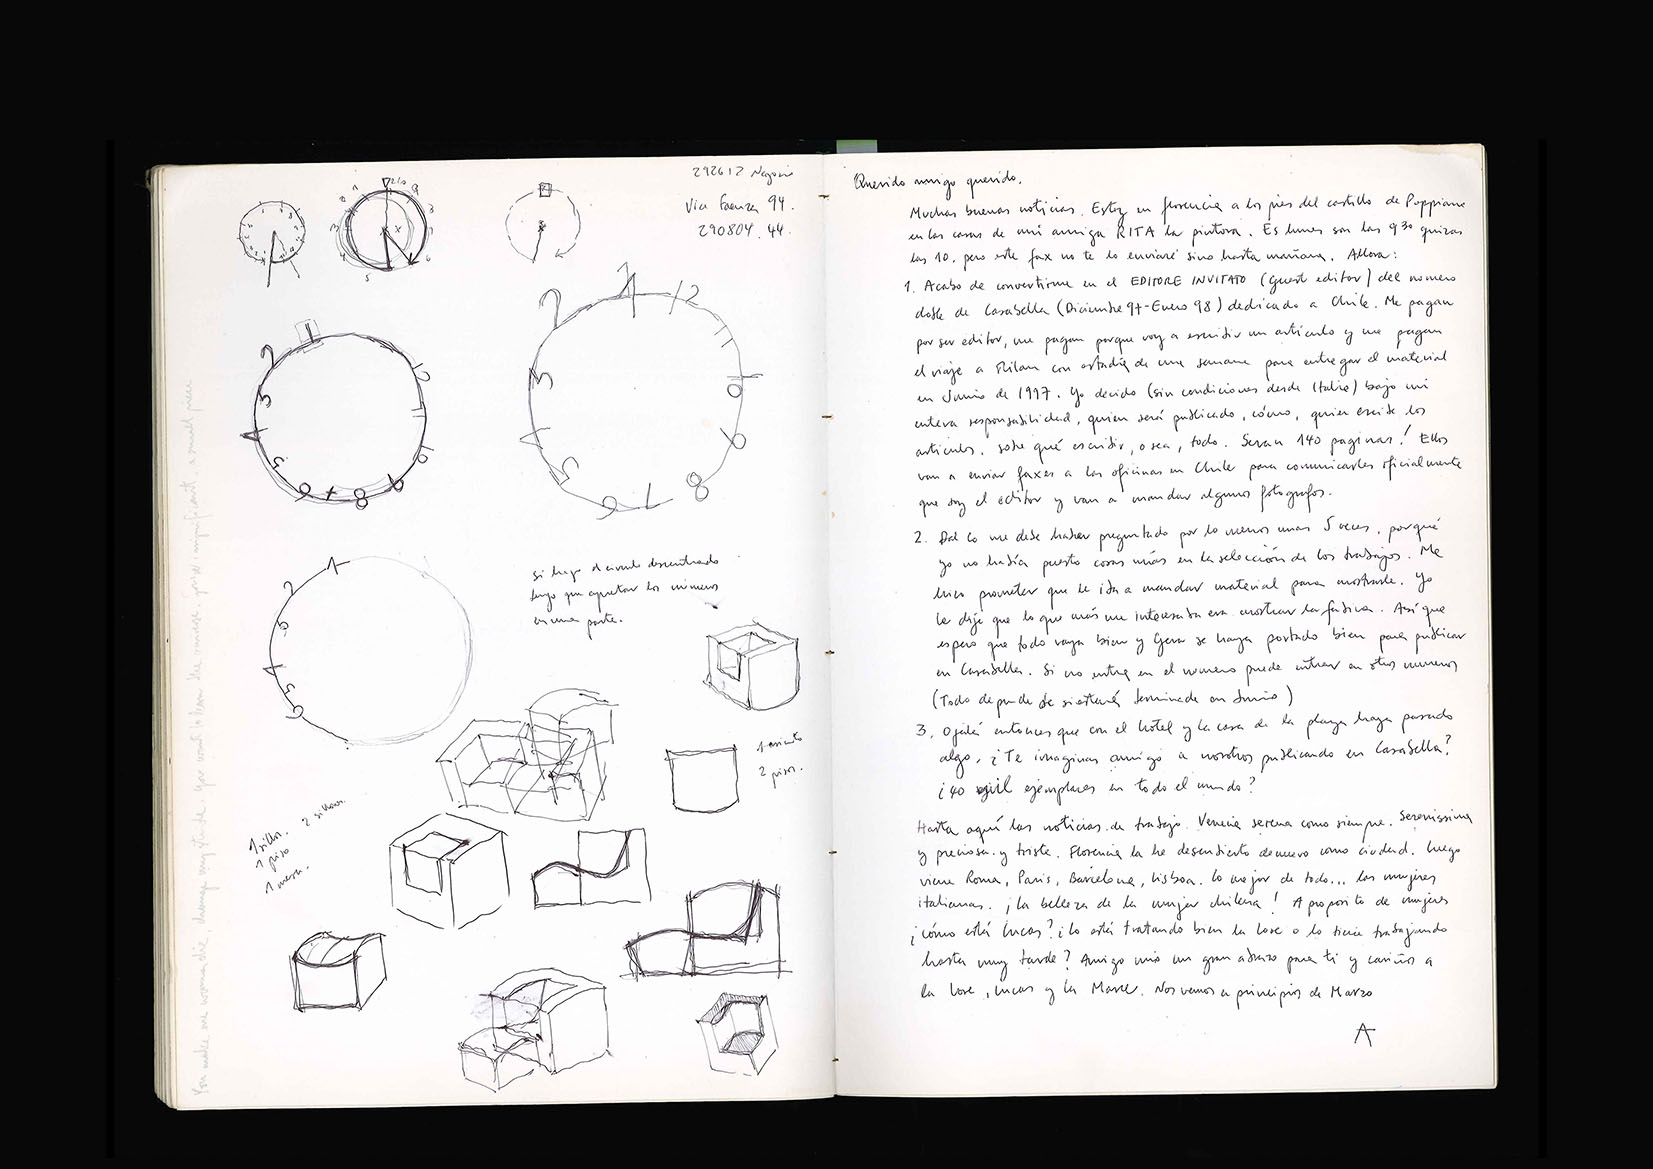 292612 Negozio
Via Faenza 94.
290804.44.
si hago el círculo descentrado
tengo que apretar los números
en una parte.
1 asiento
2 piso.
1 sillón. 2 sillones.
1 piso
1 mesa.
Querido amigo querido.
Muchas buenas noticias. Estoy en florencia a los pies del castillo de Poppiano
en las casas de mi amiga RITA la pintora. Es lunes son las 9 30 quizas
las 10, pero este fax no te lo enviaré sino hasta mañana. Allora:
1. Acabo de convertirme en el EDITORE INVITATO (guest editor) del numero
doble de Casabella (Diciembre 97-Enero 98) dedicado a Chile. Me pagan
por ser editor, me pagan porque voy a escribir un artículo y me pagan
el viaje a Milan con estadía de una semana para entregar el material
en Junio de 1997. Yo decido (sin condiciones desde Italia) bajo mi
entera responsabilidad, quien será publicado, cómo, quien escribe los
artículos, sobre qué escribir, o sea, todo. Seran 140 paginas! Ellos
van a enviar faxes a las oficinas en Chile para comunicarles oficialmente
que soy el editor y van a mandar algunos fotografos.
2. Dal Co me debe haber preguntado por lo menos unas 5 veces, porqué
yo no había puesto cosas mías en la selección de los trabajos. Me
hizo prometer que le iba a mandar material para mostrarle. Yo
le dije que lo que más me interesaba era mostrar la fabrica. Así que
espero que todo vaya bien y Gera se haya portado bien para publicar
en Casabella. Si no entra en el numero puede entrar en otros numeros
(Todo depende de si estará terminada en Junio)
3. Ojalá entonces que con el hotel y la casa de la playa haya pasado
algo. ¿Te imaginas amigo a nosotros publicando en Casabella?
¿40 mil ejemplares en todo el mundo?
Hasta aquí las noticias de trabajo. Venecia serena como siempre. Serenissima
y preciosa y triste. Florencia la he descubierto de nuevo como ciudad. Luego
viene Roma, Paris, Barcelona, Lisboa. Lo mejor de todo... las mujeres
italianas. ¡La belleza de la mujer chilena! A proposito de mujeres
¿cómo está Lucas? ¿lo está tratando bien la Lore o lo tiene trabajando
hasta muy tarde? Amigo mío un gran abrazo para ti y cariños a
la Lore, Lucas y la Marce. Nos vemos a principios de Marzo
A